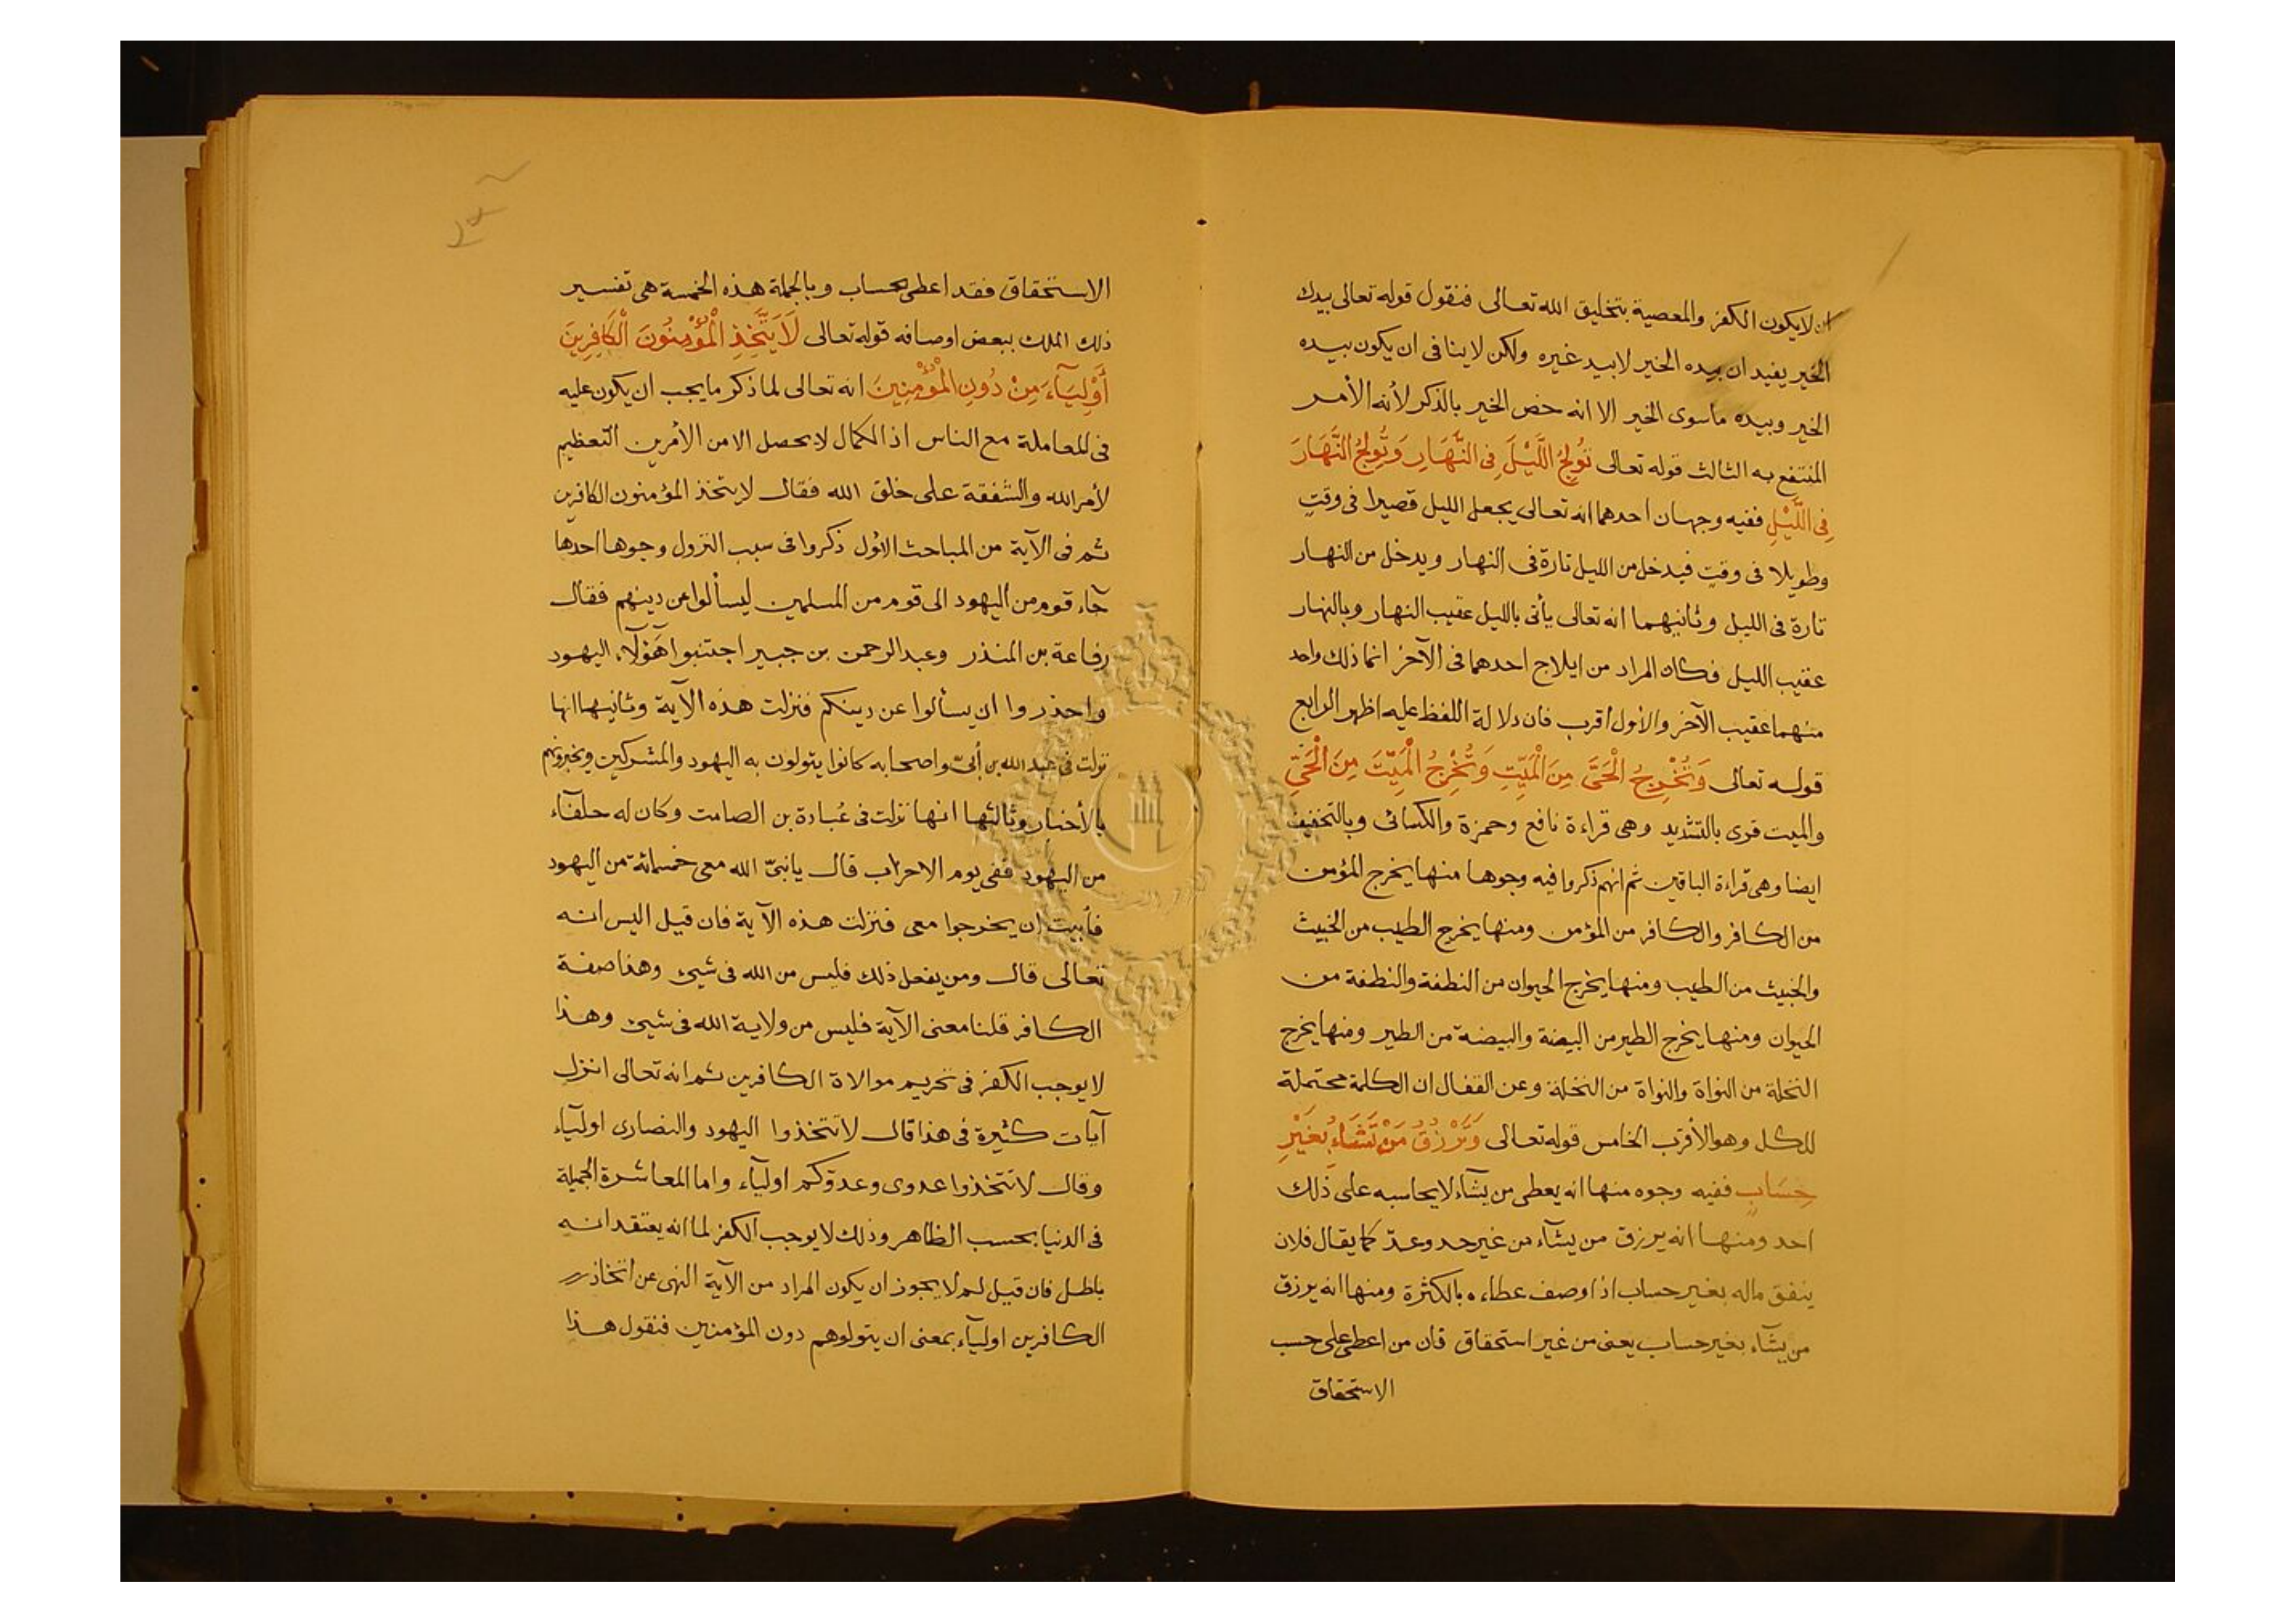 ان لا يكون الكفر والمعصية بتخليق الله تعالى فنقول قوله تعالى بيدك
الخير يفيد ان بيده الخير لا بيد غيره ولكن لا ينافى ان يكون بيده
الخير وبيده ماسوى الخير الا انه خص الخير بالذكر لأنه الأمر
المنتفع به الثالث قوله تعالى تُولِجُ اللَّيْلَ فِى النَّهَارِ وَتُولِجُ النَّهَارَ
فِى اللَّيْلِ ففيه وجهان احدهما انه تعالى يجعل الليل قصيرا فى وقتٍ
وطويلا فى وقتٍ فيدخل من الليل تارة فى النهار ويدخل من النهار
تارة فى الليل وثانيهما انه تعالى يأتى بالليل عقيب النهار وبالنهار
عقيب الليل فكان المراد من ايلاج احدهما فى الآخر انما ذلك واحد
منهما عقيب الآخر والأول أقرب فان دلالة اللفظ عليه اظهر الرابع
قوله تعالى وَتُخْرِجُ الْحَىَّ مِنَ الْمَيِّتِ وَتُخْرِجُ الْمَيِّتَ مِنَ الْحَىِّ
والميت قوى بالتشديد وهى قراءة نافع وحمزة والكسائى وبالتخفيف
ايضا وهى قراءة الباقين ثم انهم ذكروا فيه وجوها منها يخرج المؤمن
من الكافر والكافر من المؤمن ومنها يخرج الطيب من الخبيث
والخبيث من الطيب ومنها يخرج الحيوان من النطفة والنطفة من
الحيوان ومنها يخرج الطير من البيضة والبيضة من الطير ومنها يخرج
النخلة من النواة والنواة من النخلة وعن القفال ان الكلمة محتملة
للكل وهو الأقرب الخامس قوله تعالى وَتَرْزُقُ مَنْ تَشَاءُ بِغَيْرِ
حِسَابٍ ففيه وجوه منها انه يعطى من يشآء لا يحاسبه على ذلك
احد ومنها انه يرزق من يشآء من غير حد وعدّ كما يقال فلان
ينفق ماله بغير حساب اذا وصف عطاءه بالكثرة ومنها انه يرزق
من يشآء بغير حساب يعنى من غير استحقاق فان من اعطى على حسب
الاستحقاق
الاستحقاق فقد اعطى بحساب وبالجملة هذه الخمسة هى تفسير
ذلك الملك ببعض اوصافه قوله تعالى لَا يَتَّخِذِ الْمُؤْمِنُونَ الْكَافِرِينَ
أَوْلِيَآءَ مِنْ دُونِ الْمُؤْمِنِينَ انه تعالى لما ذكر ما يجب ان يكون عليه
فى المعاملة مع الناس اذ الكمال لا يحصل الا من الأمرين التعظيم
لأمر الله والشفقة على خلق الله فقال لا يتخذ المؤمنون الكافرين
ثم فى الآية من المباحث الأول ذكروا فى سبب النزول وجوها احدها
جاء قوم من اليهود الى قوم من المسلمين ليسألوا عن دينهم فقال
رفاعة بن المنذر وعبد الرحمن بن جبير اجتنبوا هؤلآء اليهود
واحذروا ان يسألوا عن دينكم فنزلت هذه الآية وثانيها انها
نزلت فى عبد الله بن أبىّ واصحابه كانوا يتولون به اليهود والمشركين ويخبرونهم
بالأخبار وثالثها انها نزلت فى عُبادة بن الصامت وكان له حلفآء
من اليهود ففى يوم الاحزاب قال يا نبىّ الله معى خمسمائة من اليهود
فأبيت ان يخرجوا معى فنزلت هذه الآية فان قيل اليس انه
تعالى قال ومن يفعل ذلك فليس من الله فى شىء وهذا صفة
الكافر قلنا معنى الآية فليس من ولاية الله فى شىء وهذا
لا يوجب الكفر فى تحريم موالاة الكافرين ثم انه تعالى انزل
آيات كثيرة فى هذا قال لا تتخذوا اليهود والنصارى اوليآء
وقال لا تتخذوا عدوى وعدوّكم اوليآء واما المعاشرة الجميلة
فى الدنيا بحسب الظاهر وذلك لا يوجب الكفر لما انه يعتقد انه
باطل فان قيل لم لا يجوز ان يكون المراد من الآية النهى عن اتخاذ
الكافرين اوليآء بمعنى ان يتولوهم دون المؤمنين فنقول هذا